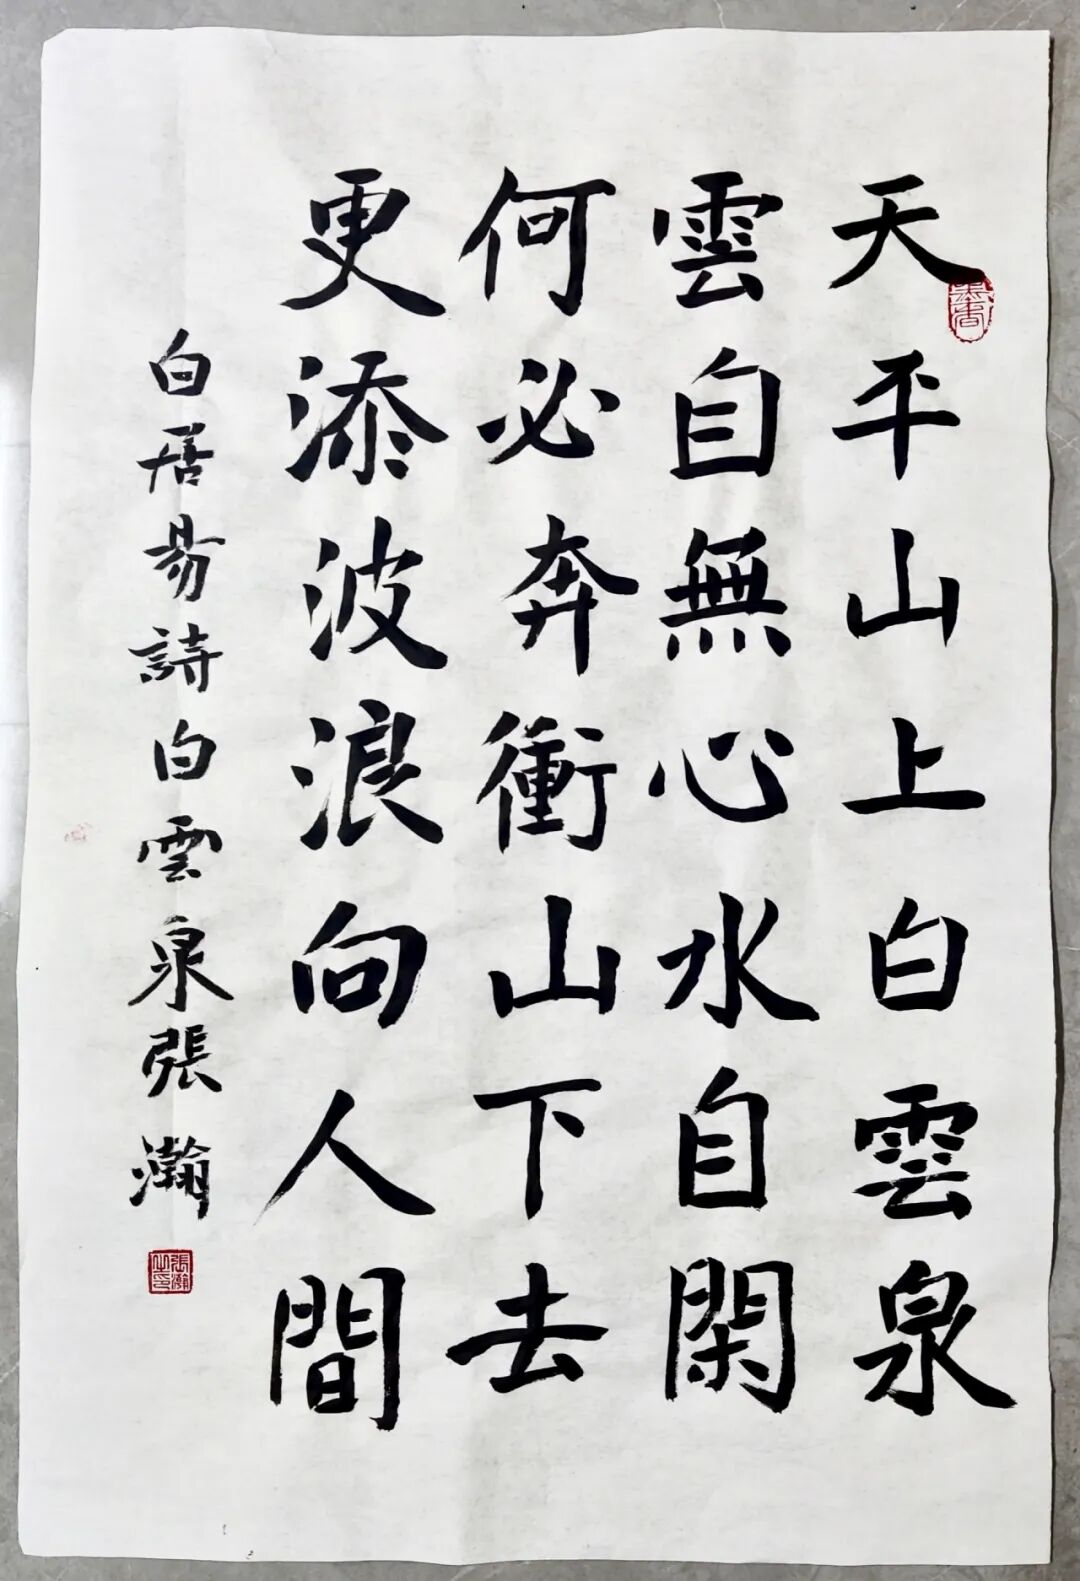 天平山上白雲泉
雲自無心水自閑
何必奔衝山下去
更添波浪向人間
白居易詩白雲泉張瀚
張瀚之印